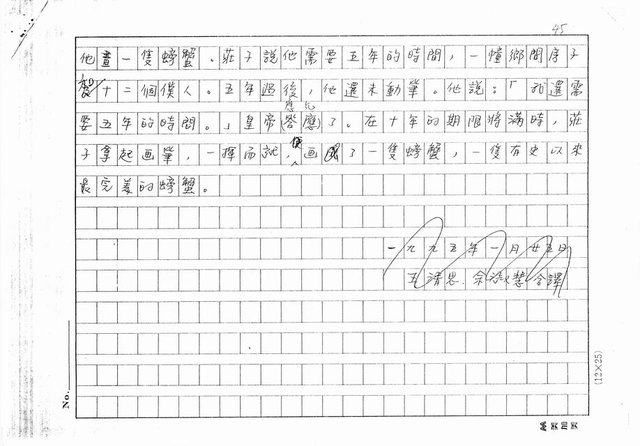 45
他畫一隻螃蟹。莊子說他需要五年的時間，一幢鄉間房子
和十二個僕人。五年過後，他還未動筆。他說：「我還需
要五年的時間。」皇帝答應了。在十年的期限將滿時，莊
子拿起画筆，一揮而就，便画了一隻螃蟹，一隻有史以來
最完美的螃蟹。
一九九五年一月廿五日
王清思、余淑慧合譯
No.
(12×25)